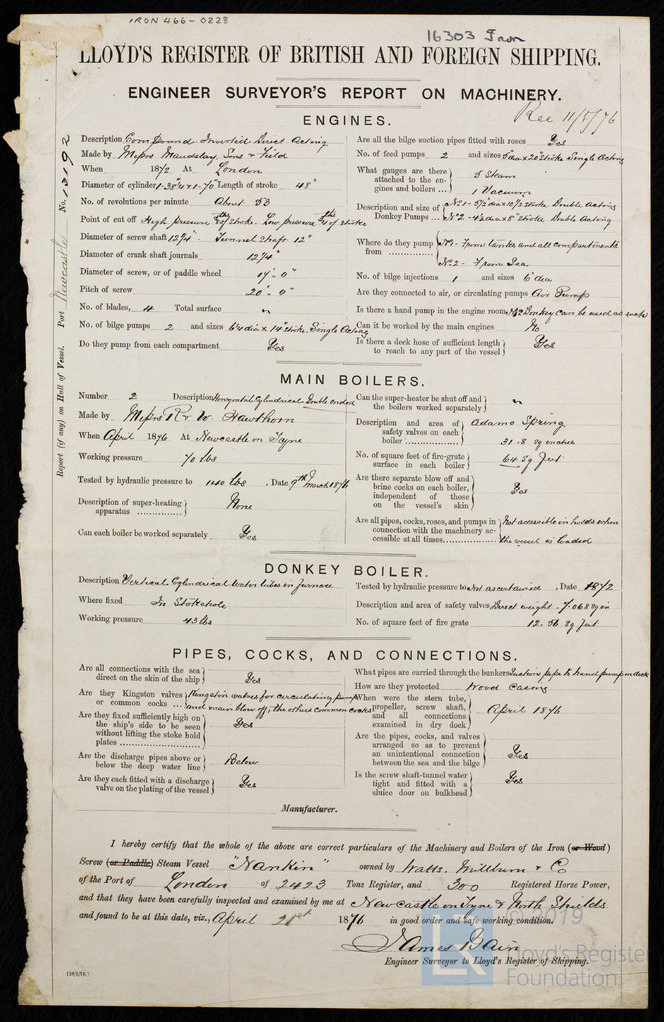 IRON 466-0228
16303 Iron
LLOYD'S REGISTER OF BRITISH AND FOREIGN SHIPPING.
ENGINEER SURVEYOR'S REPORT ON MACHINERY.
Rec 11/5/76
Report (if any) on Hull of Vessel. Port Newcastle No. 13192
ENGINES.
Description Compound Inverted Direct Acting
Made by Messrs Maudslay, Sons & Field
When 1872 At London
Diameter of cylinder 1-38"& 1-70" Length of stroke 48"
No. of revolutions per minute About 53
Point of cut off High pressure of stroke. Low pressure of stroke
Diameter of screw shaft 12¾". Tunnel shaft 12"
Diameter of crank shaft journals 12¾"
Diameter of screw, or of paddle wheel 17'-0"
Pitch of screw 20'-0"
No. of blades, 4 Total surface "
No. of bilge pumps 2 and sizes dia x 14" stroke. Single Acting
Do they pump from each compartment Yes
Are all the bilge suction pipes fitted with roses Yes
No. of feed pumps 2 and sizes dia x 20" Stroke Single Acting
What gauges there are attached to the engines and boilers ... 5 Steam
1 Vacuum
Description and size of Donkey Pumps ... No 1- dia x stroke Double Acting
No 2- dia x 8" stroke Double Acting
Where do they pump from No 1- From tanks and all compartments
No 2- From Sea
No. of bilge injections 1 and sizes 6" dia
Are they connected to air, or circulating pumps Air Pump
Is there a hand pump in the engine room No 2 Donkey can be used as such
Can it be worked by the main engines No
Is there a deck hose of sufficient length to reach to any part of the vessel Yes
MAIN BOILERS.
Number 2 Description Horizontal Cylindrical Double ended
Made by Messrs R & W. Hawthorn
When April 1876 At Newcastle on Tyne
Working pressure 70 lbs
Tested by hydraulic pressure to 140 lbs, Date 9th March 1876
Description of super-heating apparatus None
Can each boiler be worked separately Yes
Can the super-heater be shut off and the boilers worked separately "
Description and area of safety valves on each boiler Adams Spring
31.8 sq inches
No. of square feet of fire-grate surface in each boiler 64 Sq feet
Are there separate blow off and brine cocks on each boiler, independent of those on the vessel's skin Yes
Are all pipes, cocks, roses, and pumps in connection with the machinery accessible at all times Not accessible in holds when
the vessel is loaded
DONKEY BOILER.
Description Vertical Cylindrical Water tubes in furnace
Where fixed In Stokehole
Working pressure 45 lbs
Tested by hydraulic pressure to Not ascertained, Date 1872
Description and area of safety valves Direct weight. 7.068 sq in
No. of square feet of fire grate 12.56 sq feet
PIPES, COCKS, AND CONNECTIONS.
Are all connections with the sea direct on the skin of the ship Yes
Are they Kingston valves or common cocks ... Kingston valves for circulating pump
and main blow off; the others common cocks
Are they fixed sufficiently high on the ship's side to be seen without lifting the stoke hold plates Yes
Are the discharge pipes above or below the deep water line Below
Are they each fitted with a discharge valve on the plating of the vessel Yes
What pipes are carried through the bunkers Suction pipe to hand pump on deck
How are they protected Wood Casing
When were the stern tube, propeller, screw shaft, and all connections examined in dry dock April 1876
Are the pipes, cocks, and valves arranged so as to prevent an unintentional connection between the sea and the bilge Yes
Is the screw shaft-tunnel water tight and fitted with a sluice door on bulkhead Yes
Manufacturer.
I hereby certify that the whole of the above are correct particulars of the Machinery and Boilers of the Iron (or Wood)
Screw (or Paddle) Steam Vessel "Nankin" owned by Watts, Milburn & Co
of the Port of London of 2423 Tons Register, and 300 Registered Horse Power,
and that they have been carefully inspected and examined by me at Newcastle on Tyne & North Shields
and found to be at this date, viz., April 21st 1876 in good order and safe working condition.
James Bain
Engineer Surveyor to Lloyd's Register of Shipping.
©2019
Lloyd's Register
Foundation